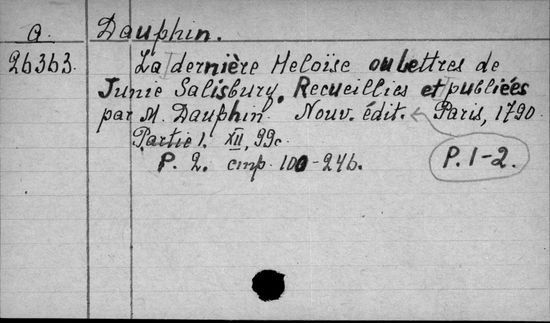 a. Dauphin.
26363. La dernière Heloïse ou Lettres de
Junie Salisbury. Recueillies et publiées
par M. Dauphin. Nouv. édit. Paris, 1790.
Partie 1. XII, 99c.
P. 2. cmp. 100-246.
P. 1-2.